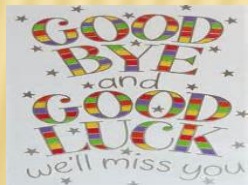 GOOD
BYE
and
GOOD
LUCK
we'll miss you